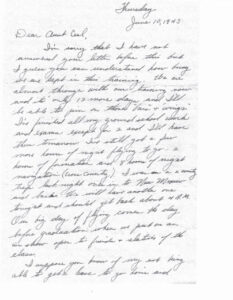 Thursday
June 10, 1943
Dear Aunt Earl,
I'm sorry that I have not
answered your letter before this but
I guess you can understand how busy
we are kept in this training. We are
almost through with our training now
and it's only 12 more days and I'll
be able to pin on those "silver wings".
I've finished all my ground school work
and exams except for 2 and I'll have
them tomorrow. I've still got a few
more hours of night flying to go 2
hours of formation and 8 hours of night
navigation (cross country). I was on a
trip last night over in to New Mexico
and back. We will have another one
tonight and should get back about 4 A.M.
Our big day of flying comes the day
before graduation when we put on an
air show open to friends & relatives of the
class.
I suppose you know of my not being
able to get a leave to go home and